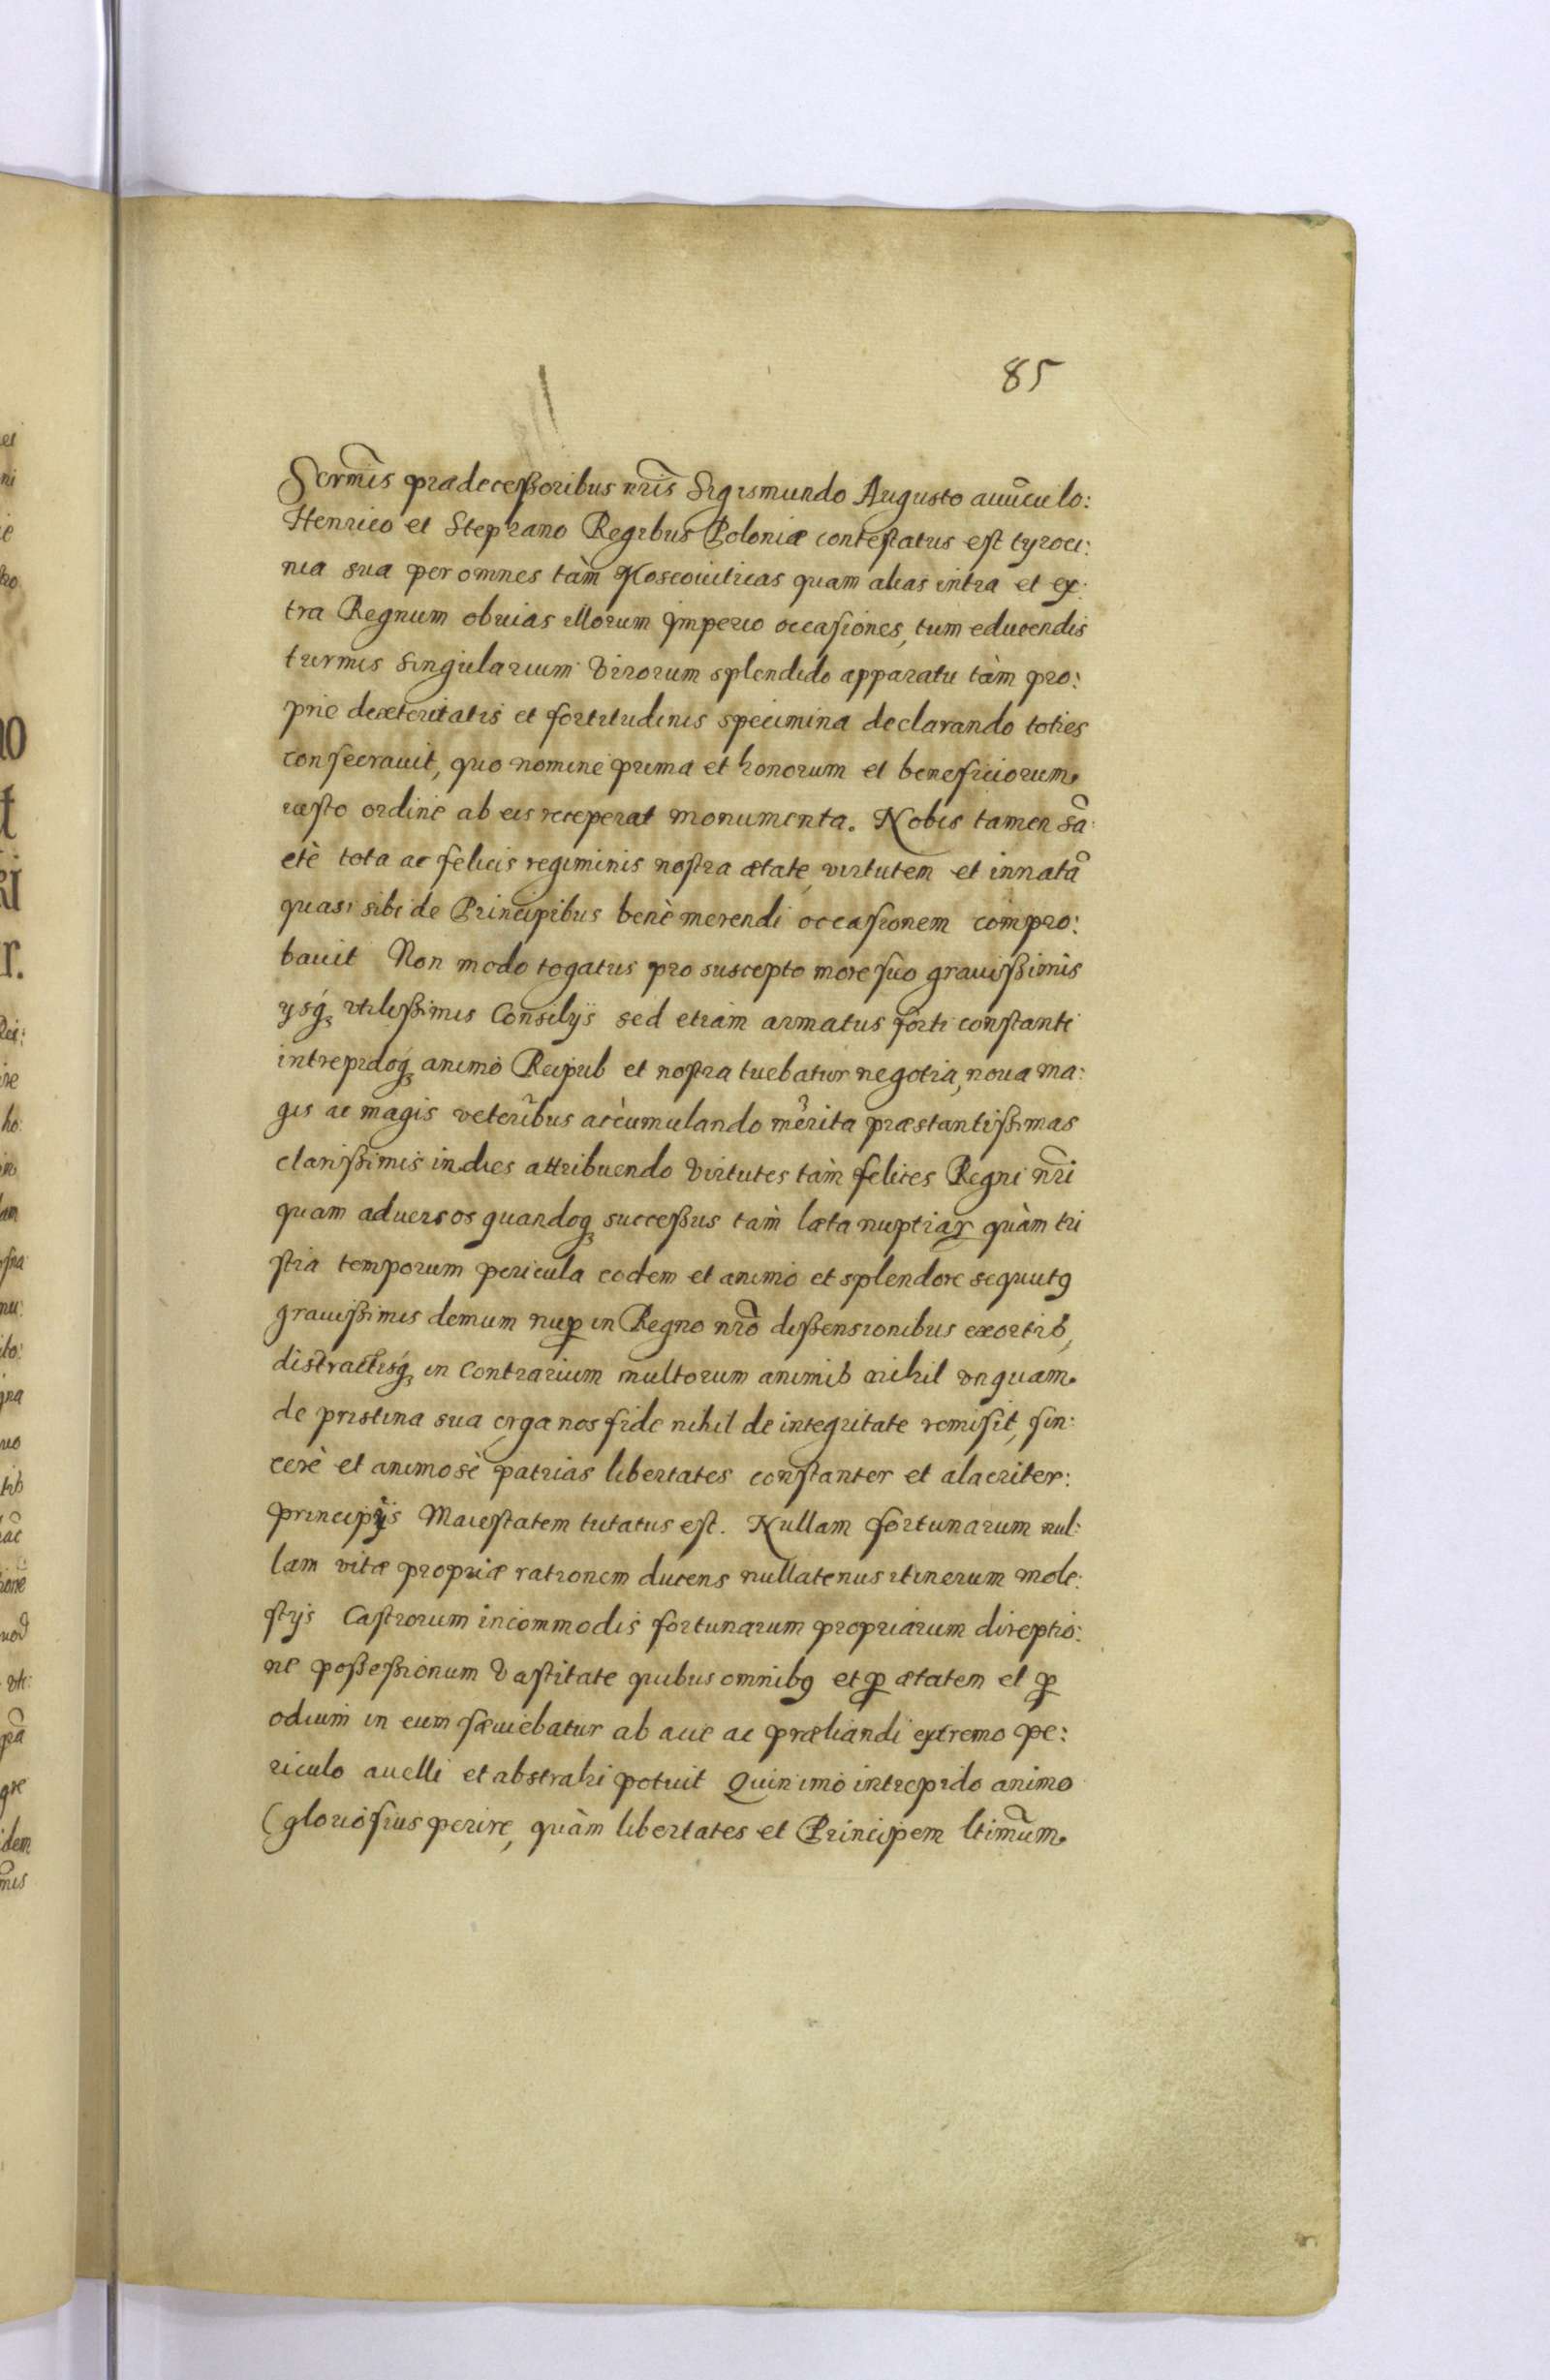 85
Serm̃is prædecessoribus nr̃is Sigismundo Augusto auũculo:
Henrico et Stephano Regibus Poloniæ contestatus est tyroci:
nia sua per omnes tàm Moscouiticas quam alias intra et ex:
tra Regnum obuias illorum Imperio occasiones, tum educendis
turmis singularium Virorum splendido apparatu tàm pro:
prie dexteritatis et fortitudinis specimina declarando toties
consecrauit, quo nomine prima et honorum et beneficiorum
iusto ordine ab eis receperat monumenta. Nobis tamen sã:
ctè tota ac felicis regiminis nostra ætate, virtutem et innatã
quasi sibi de Principibus benè merendi occasionem compro:
bauit Non modo togatus pro suscepto more suo grauissimis
ysq́ꝫ vtilissimis Consilÿs sed etiam armatus forti constanti
intrepidoq́ꝫ animo Reipub et nostra tuebatur negotia, noua ma:
gis ac magis veteribus accumulando merita præstantissimas
clarissimis indies attribuendo Virtutes tàm felices Regni nr̃i
quam aduersos quandoqꝫ successus tàm læta nuptiaꝝ quàm tri
stia temporum pericula eodem et animo et splendore sequutꝰ
grauissimis demum nuꝑ in Regno nr̃o dissensionibus exortib,
distractisq́ꝫ in Contrarium multorum animib nihil vnquam
de pristina sua erga nos fide nihil de integritate remisit, sin:
cerè et animosè patrias libertates constanter et alacriter:
principÿs Maiestatem tutatus est. Nullam fortunarum nul:
lam vitæ propriæ rationem ducens nullatenus itinerum mole:
stÿs Castrorum incommodis fortunarum propriarum direptio:
ne possessionum Vastitate quibus omnibꝰ et ꝑ ætatem et ꝑ
odium in eum sæuiebatur ab acie ac præliandi extremo pe:
riculo auelli et abstrahi potuit Quin imò intrepido animo
(gloriosius perire, quàm libertates et Principem ltimũm